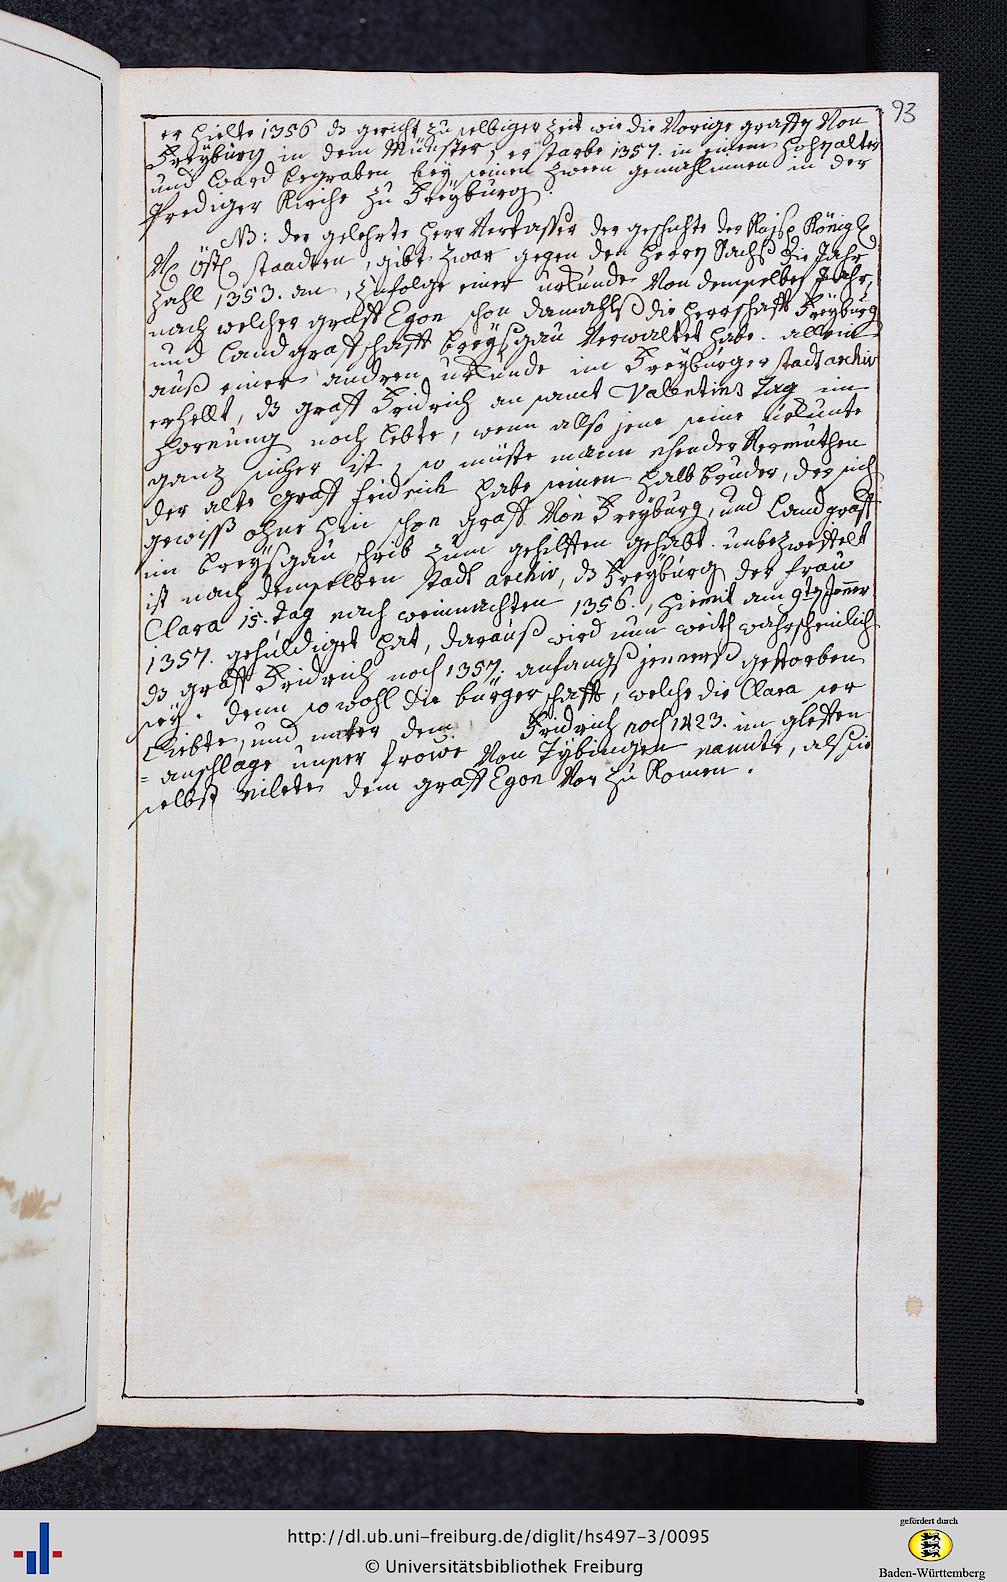 93
er hielte 1356 dz gericht zu selbiger zeit wie die Vorige graffen Von
Freÿburg in dem Münster, er starbe 1357. in einem hohen alter
und ward begraben beÿ seinen zween gemahlinnen in der
Prediger Kirche zu Freÿburg.
NB: der gelehrte herr Verfasser der geschichte der Kajs. Königl.
V. Öst. staadten, gibt zwar gegen den herrn Sachs die Jahr
zahl 1353. an, zufolge einer urkunde Von demselben Jahr,
nach welcher graff Egon schon damahlß die herrschafft Freÿburg
und landgraffschafft breÿßgau Verwaltet habe. allein
auß einer andren urkunde im Freÿburger stadt archiv
erhellt, dz graff Fridrich an sanct Valentins Tag im
hornung noch lebte, wenn allso jene seine urkunte
ganz sicher ist, so müste mann ehender Vermuthen
der alte graff fridrich habe seinen halb bruder, der sich
gewiß ohne hin schon graff Von Freÿburg, und landgraff
im breÿßgau schrib zum gehilffen gehabt. unbezweiffelt
ist nach demselben stadt archiv, dz Freÿburg der frau
Clara 15. tag nach weinnachten 1356., hiemit am 9ten Jenner
1357. gehuldiget hat, darauß wird nun weith wahrscheinlich
dz graff Fridrich noch 1357. anfangß jenners gestorben
seÿ. denn sowohl die burgerschafft, welche die Clara ser
liebte, und unter dem Fridrich noch 1423. im glesten
anschlage unser frowe Von Tÿbingen nannte, als sie
selbst eilete dem graff Egon Vor zu komen.
http://dl.ub.uni-freiburg.de/diglit/hs497-3/0095
© Universitätsbibliothek Freiburg
gefördert durch
Baden-Württemberg